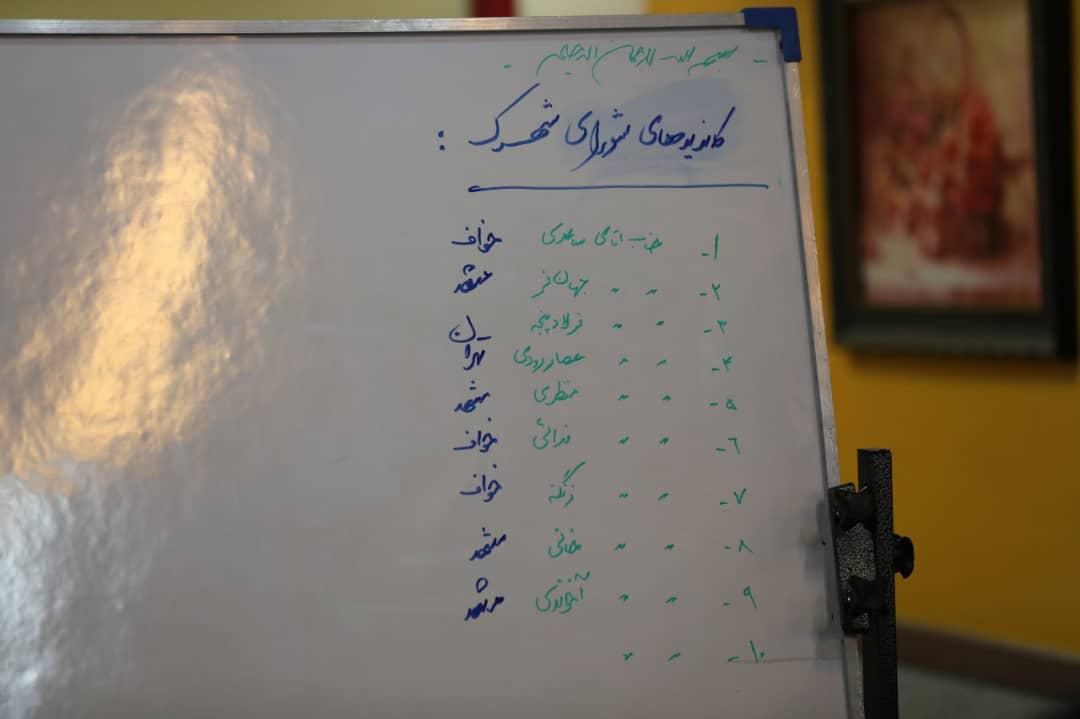 - بسم الله الرحمان الرحیم -
کاندیدهای شورای شهرک :
۱- جناب آقای ساعدی خواف
۲- " " جهان فر مشهد
۳- " " فولادپنجه تهران
۴- " " عصاررودی تهران
۵- " " منظری مشهد
۶- " " فدائی خواف
۷- " " زنگنه خواف
۸- " " خانی مشهد
۹- " " آخوندی مشهد
۱۰- " "